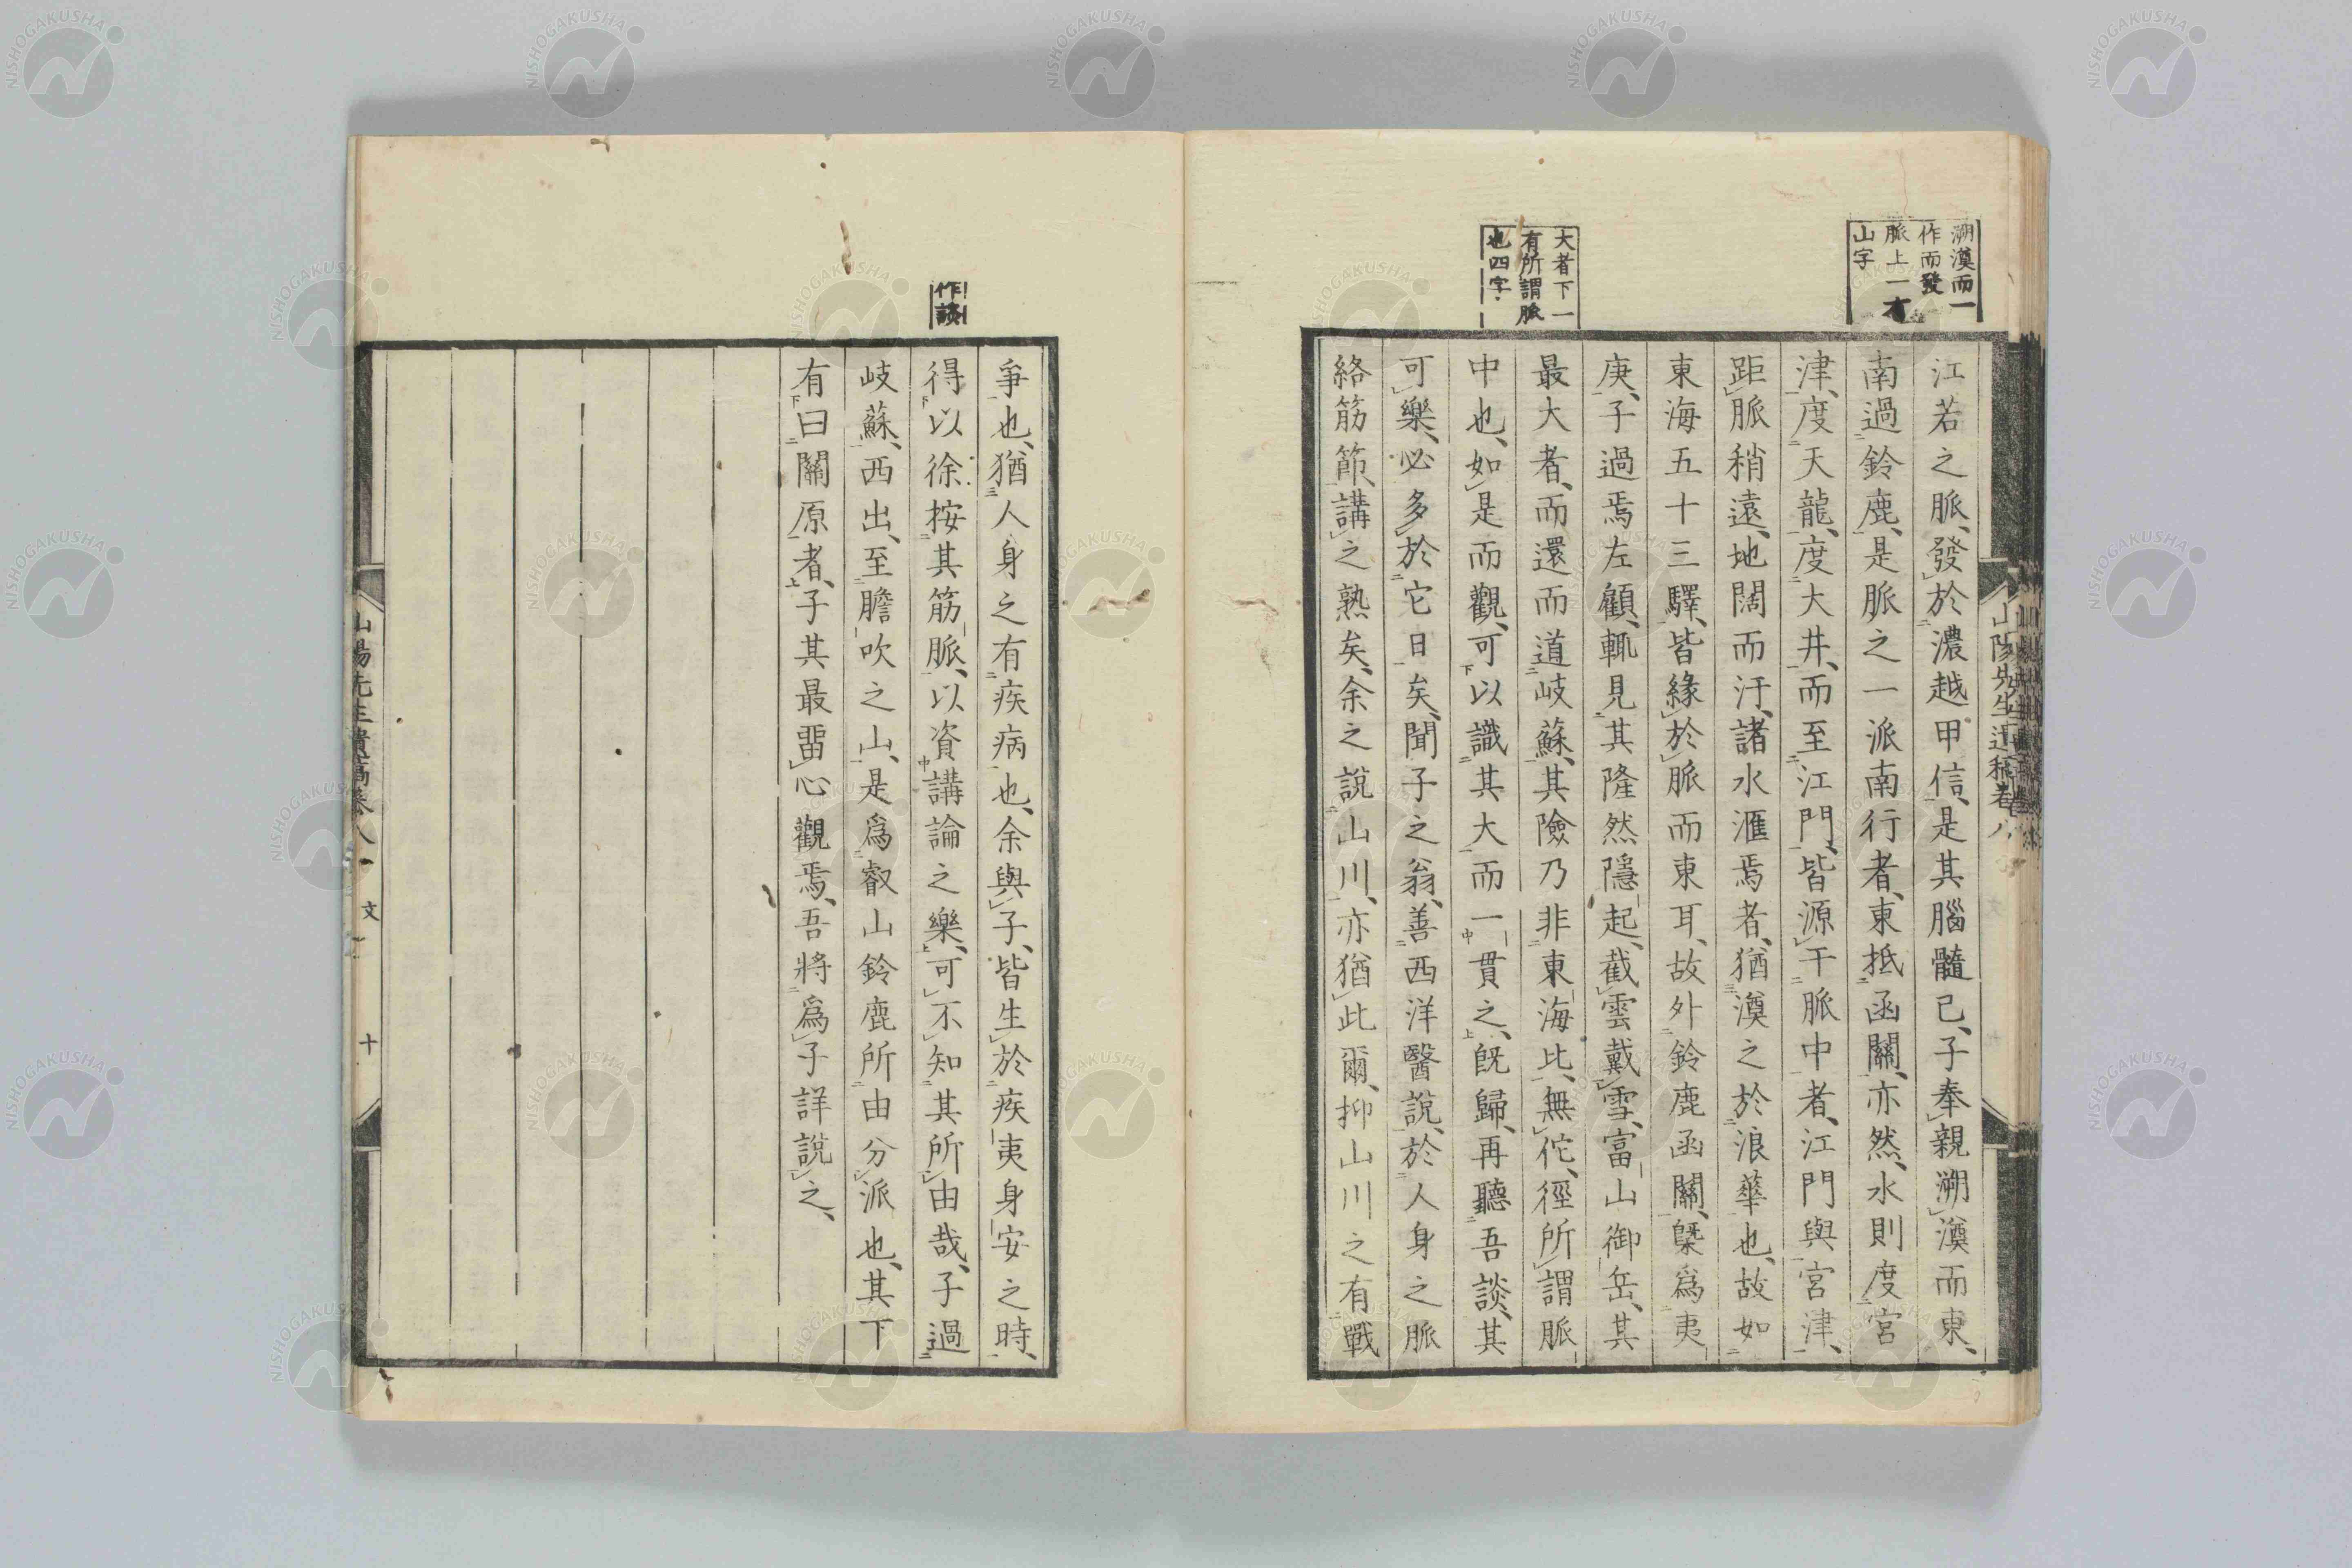 溯澫而一
作而發
脈上一有
山字
大者下一
有所謂脈
也四字
江若之脈、發於濃越甲信、是其腦髓已、子奉親溯澫而東、
南過鈴鹿、是脈之一派南行者、東抵函關、亦然、水則度宮
津、度天龍、度大井、而至江門、皆源于脈中者、江門與宮津、
距脈稍遠、地闊而汙、諸水滙焉者、猶澫之於浪華也、故如
東海五十三驛、皆緣於脈而東耳、故外鈴鹿函關、槩爲夷
庚、子過焉左顧、輒見其隆然隱起、截雲戴雪、富山御岳、其
最大者、而還而道岐蘇、其險乃非東海比、無佗、徑所謂脈
中也、如是而觀、可以識其大而一貫之、既歸、再聽吾談、其
可樂、必多於它日矣、聞子之翁、善西洋醫說、於人身之脈
絡筋節、講之熟矣、余之說山川、亦猶此爾、抑山川之有戰
山陽先生遺稿卷八
作談
爭也、猶人身之有疾病也、余與子、皆生於疾夷身安之時、
得以徐按其筋脈、以資講論之樂、可不知其所由哉、子過
岐蘇、西出、至膽吹之山、是爲叡山鈴鹿所由分派也、其下
有曰關原者、子其最畱心觀焉、吾將爲子詳說之、
山陽先生遺稿卷八
文
十
NISHOGAKUSHA